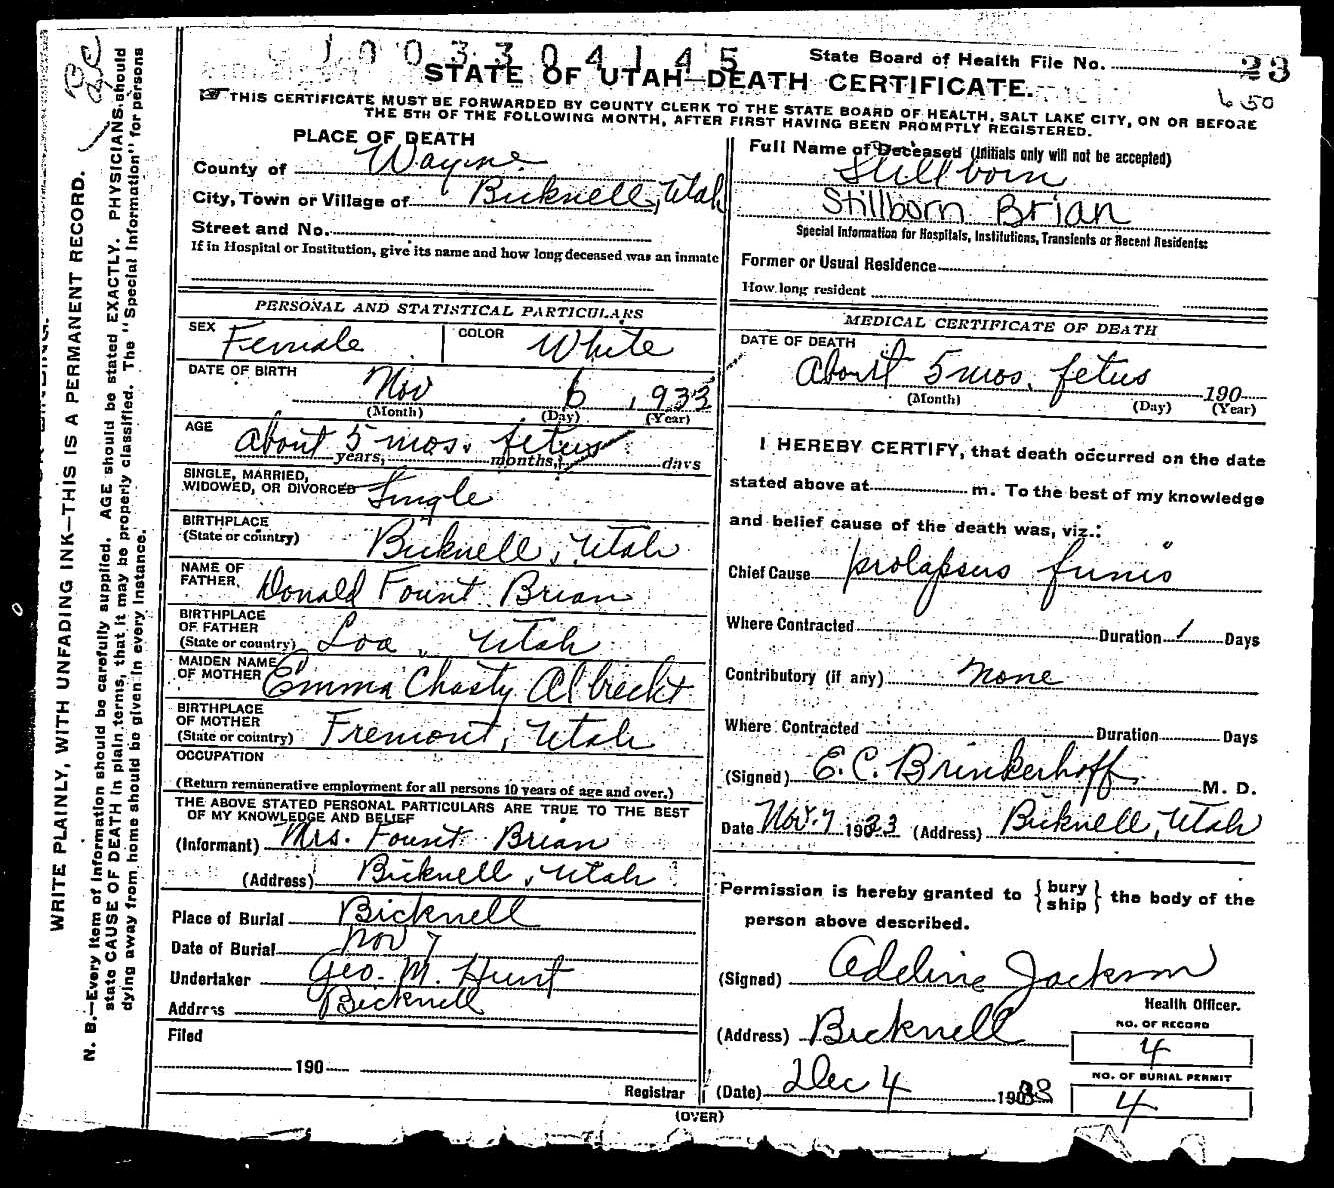 1003304145
State Board of Health File No. 23
STATE OF UTAH—DEATH CERTIFICATE.
650
THIS CERTIFICATE MUST BE FORWARDED BY COUNTY CLERK TO THE STATE BOARD OF HEALTH, SALT LAKE CITY, ON OR BEFORE
THE 5TH OF THE FOLLOWING MONTH, AFTER FIRST HAVING BEEN PROMPTLY REGISTERED.
PLACE OF DEATH
County of Wayne
City, Town or Village of Bicknell, Utah
Street and No.
If in Hospital or Institution, give its name and how long deceased was an inmate
PERSONAL AND STATISTICAL PARTICULARS
SEX Female COLOR White
DATE OF BIRTH Nov 6, 1933
(Month) (Day) (Year)
AGE about 5 mos. fetus
years, months, days
SINGLE, MARRIED,
WIDOWED, OR DIVORCED Single
BIRTHPLACE
(State or country) Bicknell, Utah
NAME OF
FATHER, Donald Fount Brian
BIRTHPLACE
OF FATHER
(State or country) Loa, Utah
MAIDEN NAME
OF MOTHER Emma Chasty Albrecht
BIRTHPLACE
OF MOTHER
(State or country) Fremont, Utah
OCCUPATION
(Return remunerative employment for all persons 10 years of age and over.)
THE ABOVE STATED PERSONAL PARTICULARS ARE TRUE TO THE BEST
OF MY KNOWLEDGE AND BELIEF
(Informant) Mrs. Fount Brian
(Address) Bicknell, Utah
Place of Burial Bicknell
Date of Burial Nov 7
Undertaker Geo. M. Hunt
Address Bicknell
Filed
190
Registrar
Full Name of Deceased (Initials only will not be accepted)
Stillborn
Stillborn Brian
Special Information for Hospitals, Institutions, Transients or Recent Residents:
Former or Usual Residence
How long resident
MEDICAL CERTIFICATE OF DEATH
DATE OF DEATH
About 5 mos. fetus 190
(Month) (Day) (Year)
I HEREBY CERTIFY, that death occurred on the date
stated above at m. To the best of my knowledge
and belief cause of the death was, viz.:
Chief Cause prolapsus funis
Where Contracted Duration 1 Days
Contributory (if any) none
Where Contracted Duration Days
(Signed) E. C. Brinkerhoff M. D.
Date Nov. 7 1933 (Address) Bicknell, Utah
Permission is hereby granted to {bury ship} the body of the
person above described.
(Signed) Adeline Jackson
Health Officer.
(Address) Bicknell
NO. OF RECORD
4
(Date) Dec 4 1933
NO. OF BURIAL PERMIT
4
(OVER)
WRITE PLAINLY, WITH UNFADING INK—THIS IS A PERMANENT RECORD.
N. B.—Every item of information should be carefully supplied. AGE should be stated EXACTLY. PHYSICIANS should
state CAUSE OF DEATH in plain terms, that it may be properly classified. The "Special Information" for persons
dying away from home should be given in every instance.